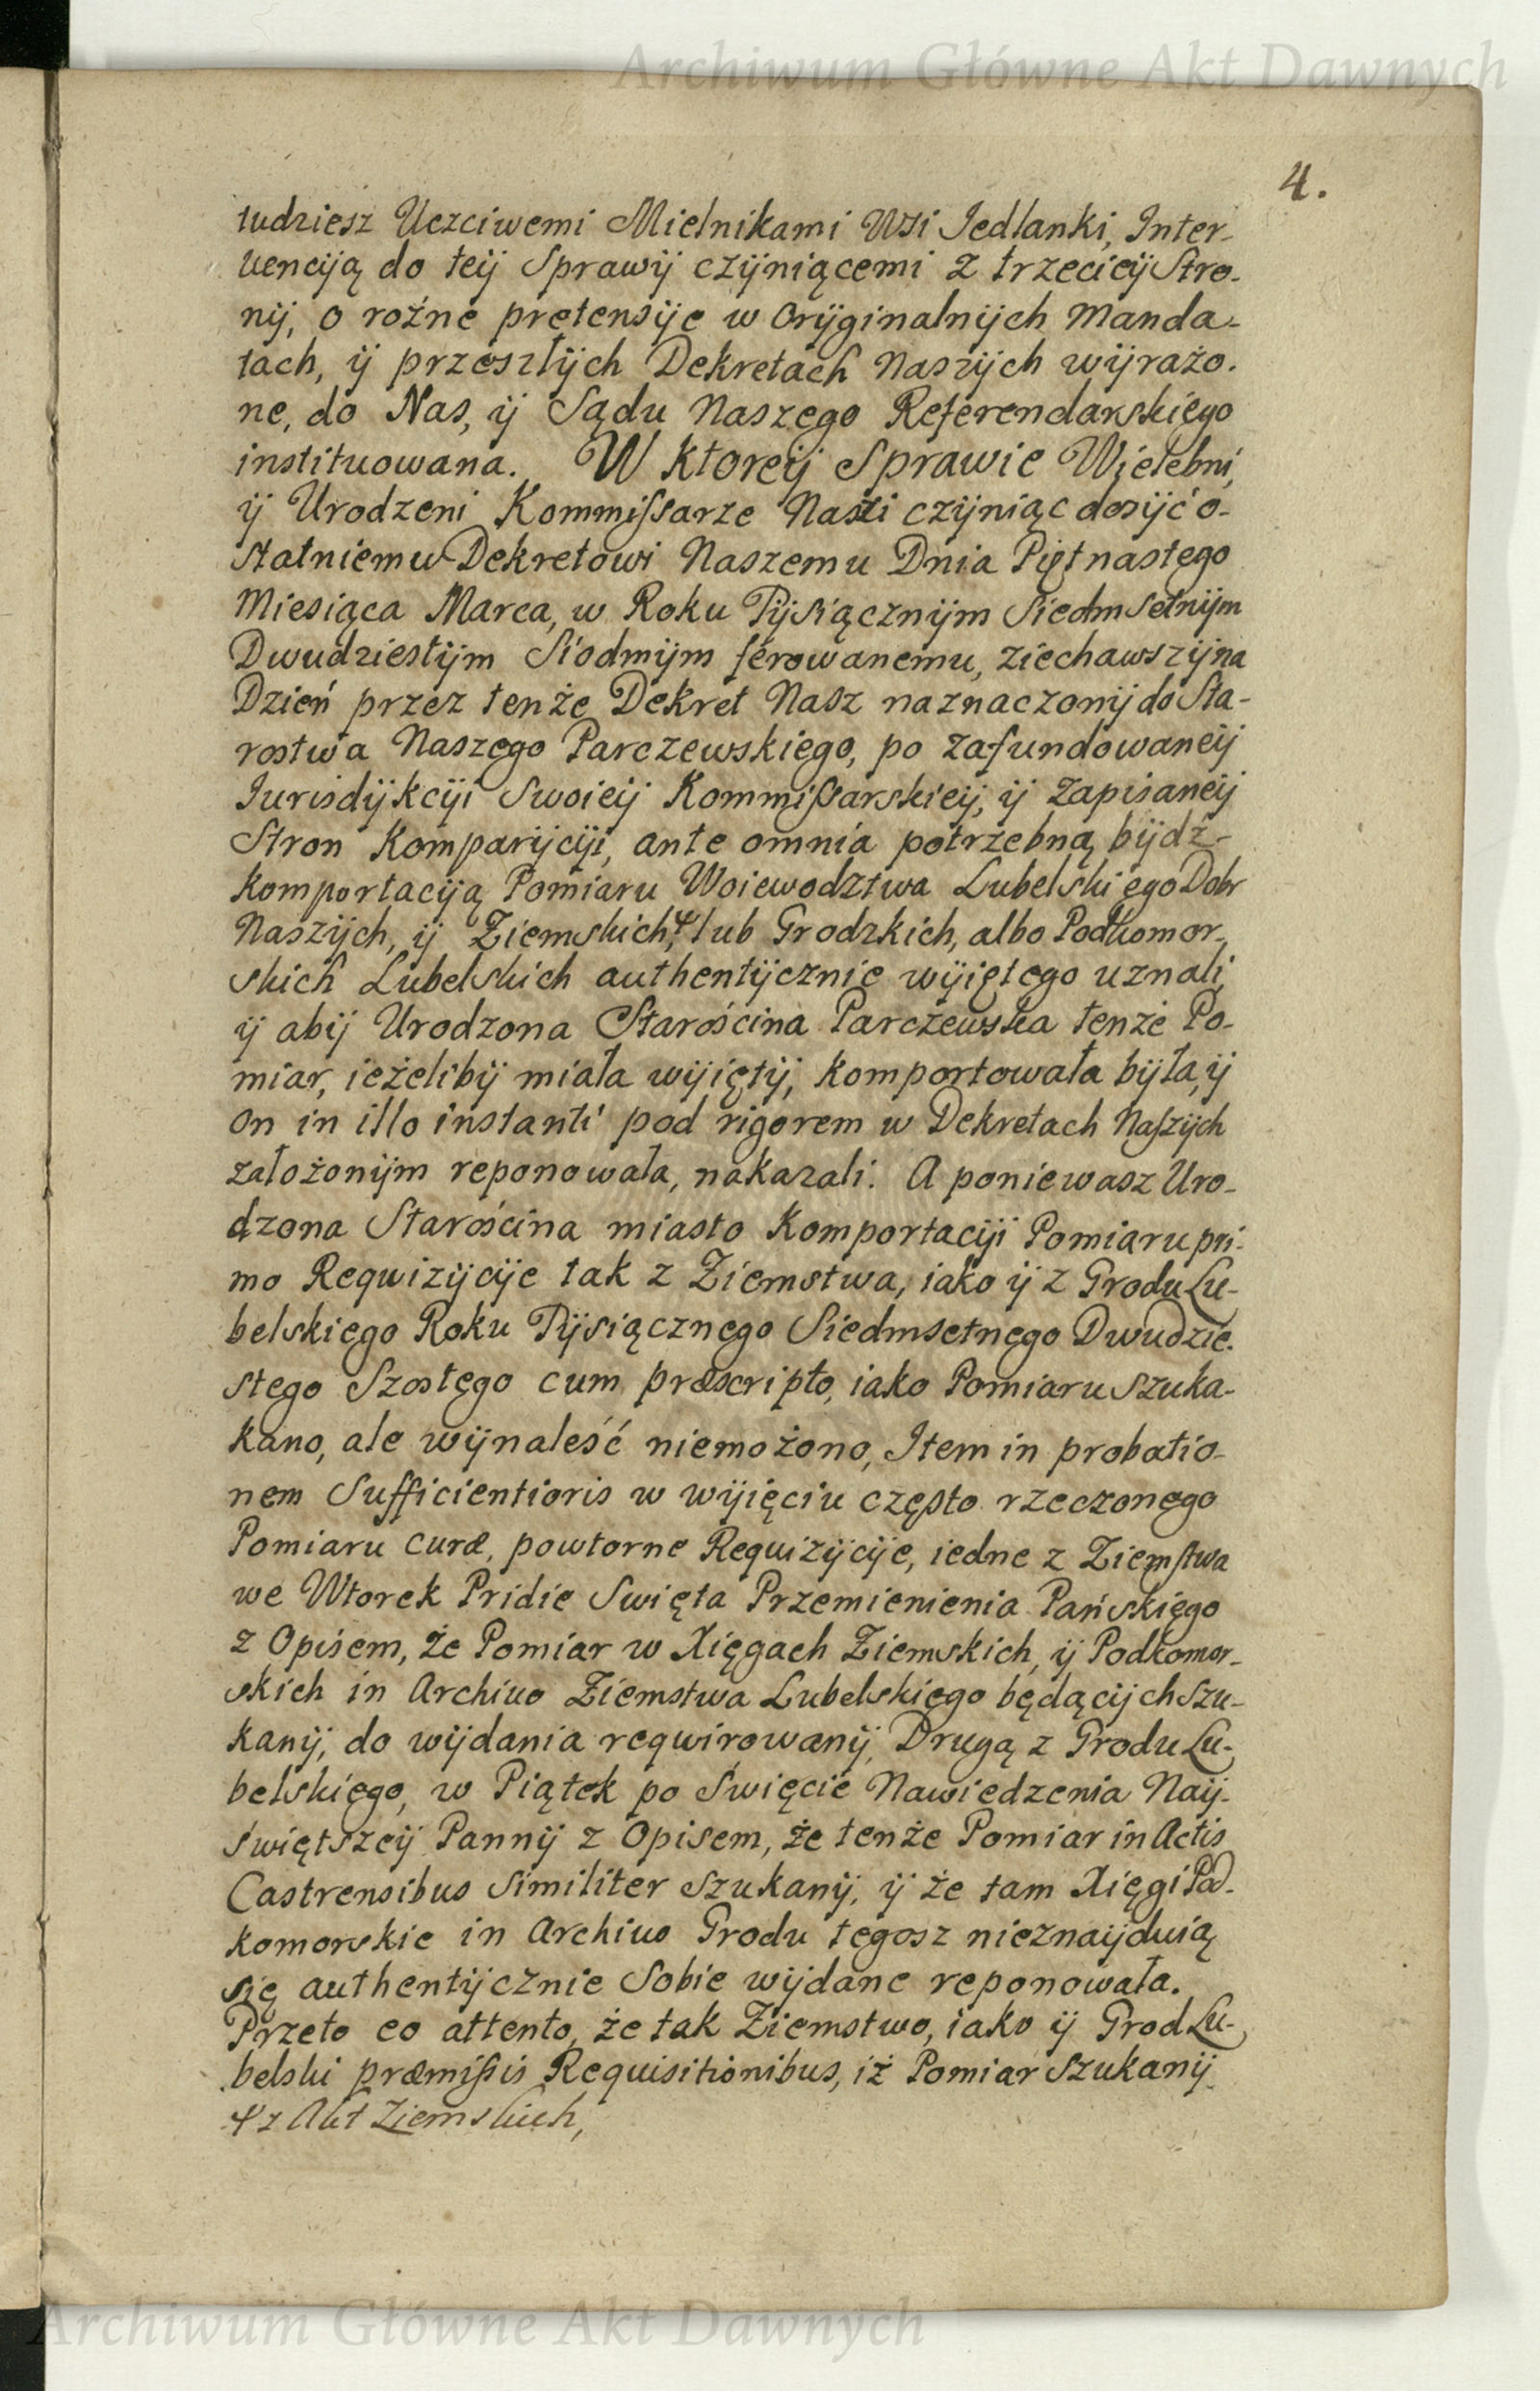 Archiwum Główne Akt Dawnych
4.
tudziesz Uczciwemi Mielnikami Wsi Jedlanki, Inter-
uenciją do teij Sprawij czijniącemi z trzecieij Stro-
nij, o rożne pretensije w Orijginalnijch Manda-
tach, ij przeszłijch Dekretach Naszijch wijrażo-
ne, do Nas, ij Sądu Naszego Referendarskiego
instituowana. W ktoreij Sprawie Wielebni,
ij Urodzeni Kommissarze Naszi czijniąc dosijć o-
statniemu Dekretowi Naszemu Dnia Piętnastego
Miesiąca Marca, w Roku Tijsiącznijm Siedmsetnijm
Dwudziestijm Siodmijm ferowanemu, ziechawszij na
Dzień przez tenże Dekret Nasz naznaczonij do Sta-
rostwa Naszego Parczewskiego, po zafundowaneij
Iurisdijkciji Swoieij Kommissarskieij, ij zapisaneij
Stron Komparijciji, ante omnia potrzebną bijdź
komportaciją Pomiaru Woiewodztwa Lubelskiego Dobr
Naszijch, ij Ziemskich, Ψ lub Grodzkich, albo Podkomor-
skich Lubelskich authentijcznie wijiętego uznali,
ij abij Urodzona Starościna Parczewska tenże Po-
miar, ieżelibij miała wijiętij, komportowała bijła, ij
on in illo instanti pod rigorem w Dekretach Naszijch
założonijm reponowała, nakazali. A poniewasz Uro-
dzona Starościna miasto Komportaciji Pomiaru pri-
mo Requizijcije tak z Ziemstwa, iako ij z Grodu Lu-
belskiego Roku Tijsiącznego Siedmsetnego Dwudzie-
stego Szostego cum præscripto, iako Pomiaru szuka-
kano, ale wijnaleść niemożono, Item in probatio-
nem Sufficientioris w wijięciu często rzeczonego
Pomiaru curæ, powtorne Requizijcije, iedne z Ziemstwa
we Wtorek Pridie Swięta Przemienienia Pańskiego
z Opisem, że Pomiar w Xięgach Ziemskich, ij Podkomor-
skich in Archiuo Ziemstwa Lubelskiego będącijch szu-
kanij, do wijdania requirowanij, Drugą z Grodu Lu-
belskiego, w Piątek po Święcie Nawiedzenia Naij-
świętszeij Pannij z Opisem, że tenże Pomiar in Actis
Castrensibus similiter szukanij, ij że tam Xięgi Pod-
komorskie in Archiuo Grodu tegosz nieznaijduią
się authentijcznie Sobie wijdane reponowała.
Przeto eo attento, że tak Ziemstwo, iako ij Grod Lu-
belski præmissis Requisitionibus, iż Pomiar szukanij
Ψ z Akt Ziemskich,
Archiwum Główne Akt Dawnych